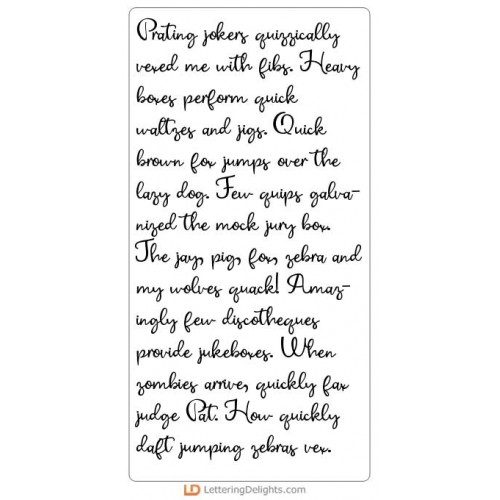 Prating jokers quizzically
vexed me with fibs. Heavy
boxes perform quick
waltzes and jigs. Quick
brown fox jumps over the
lazy dog. Few quips galva-
nized the mock jury box.
The jay, pig, fox, zebra and
my wolves quack! Amaz-
ingly few discotheques
provide jukeboxes. When
zombies arrive, quickly fax
judge Pat. How quickly
daft jumping zebras vex.
LD LetteringDelights.com